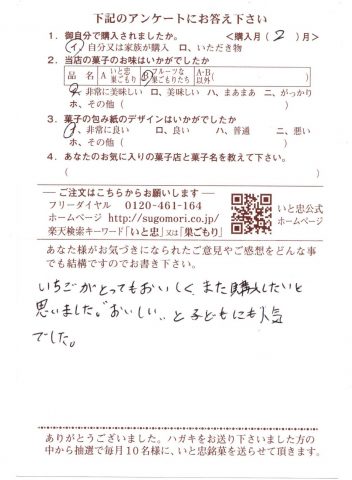 下記のアンケートにお答え下さい
1. 御自分で購入されましたか。 <購入月(2)月>
イ. 自分又は家族が購入 ロ、いただき物
2. 当店の菓子のお味はいかがでしたか
品名 A いと忠巣ごもり B フルーツな巣ごもりたち A・B以外( )
イ、非常に美味しい ロ、美味しい ハ、まあまあ ニ、がっかり
ホ、その他( )
3. 菓子の包み紙のデザインはいかがでしたか
イ、非常に良い ロ、良い ハ、普通 ニ、悪い
ホ、その他( )
4. あなたのお気に入りの菓子店と菓子名を教えて下さい。
( )
ご注文はこちらからお願いします
フリーダイヤル 0120-461-164
ホームページ http://sugomori.co.jp/
楽天検索キーワード「いと忠」又は「巣ごもり」
いと忠公式
ホームページ
あなた様がお気づきになられたご意見やご感想をどんな事
でも結構ですのでお書き下さい。
いちごがとってもおいしく、また購入したいと
思いました。"おいしい"と子どもにも人気
でした。
ありがとうございました。ハガキをお送り下さいました方の
中から抽選で毎月10名様に、いと忠銘菓を送らせて頂きます。